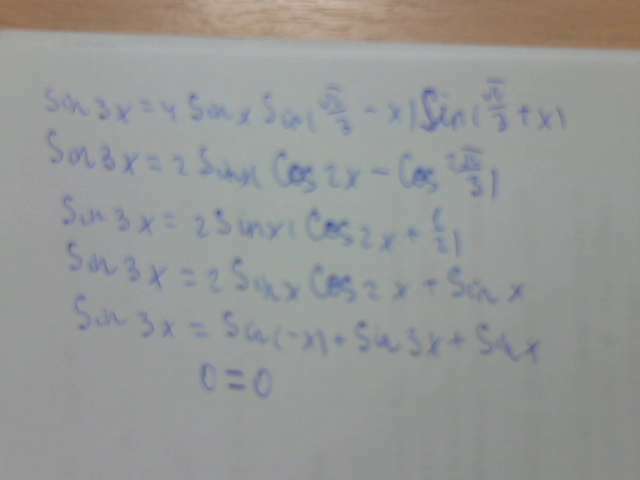 Sin 3x = 4 Sin x Sin(π/3 - x) Sin(π/3 + x)
Sin 3x = 2 Sin x( Cos 2x - Cos 2π/3)
Sin 3x = 2 Sin x( Cos 2x + 1/2)
Sin 3x = 2 Sin x Cos 2x + Sin x
Sin 3x = Sin(-x) + Sin 3x + Sin x
0 = 0